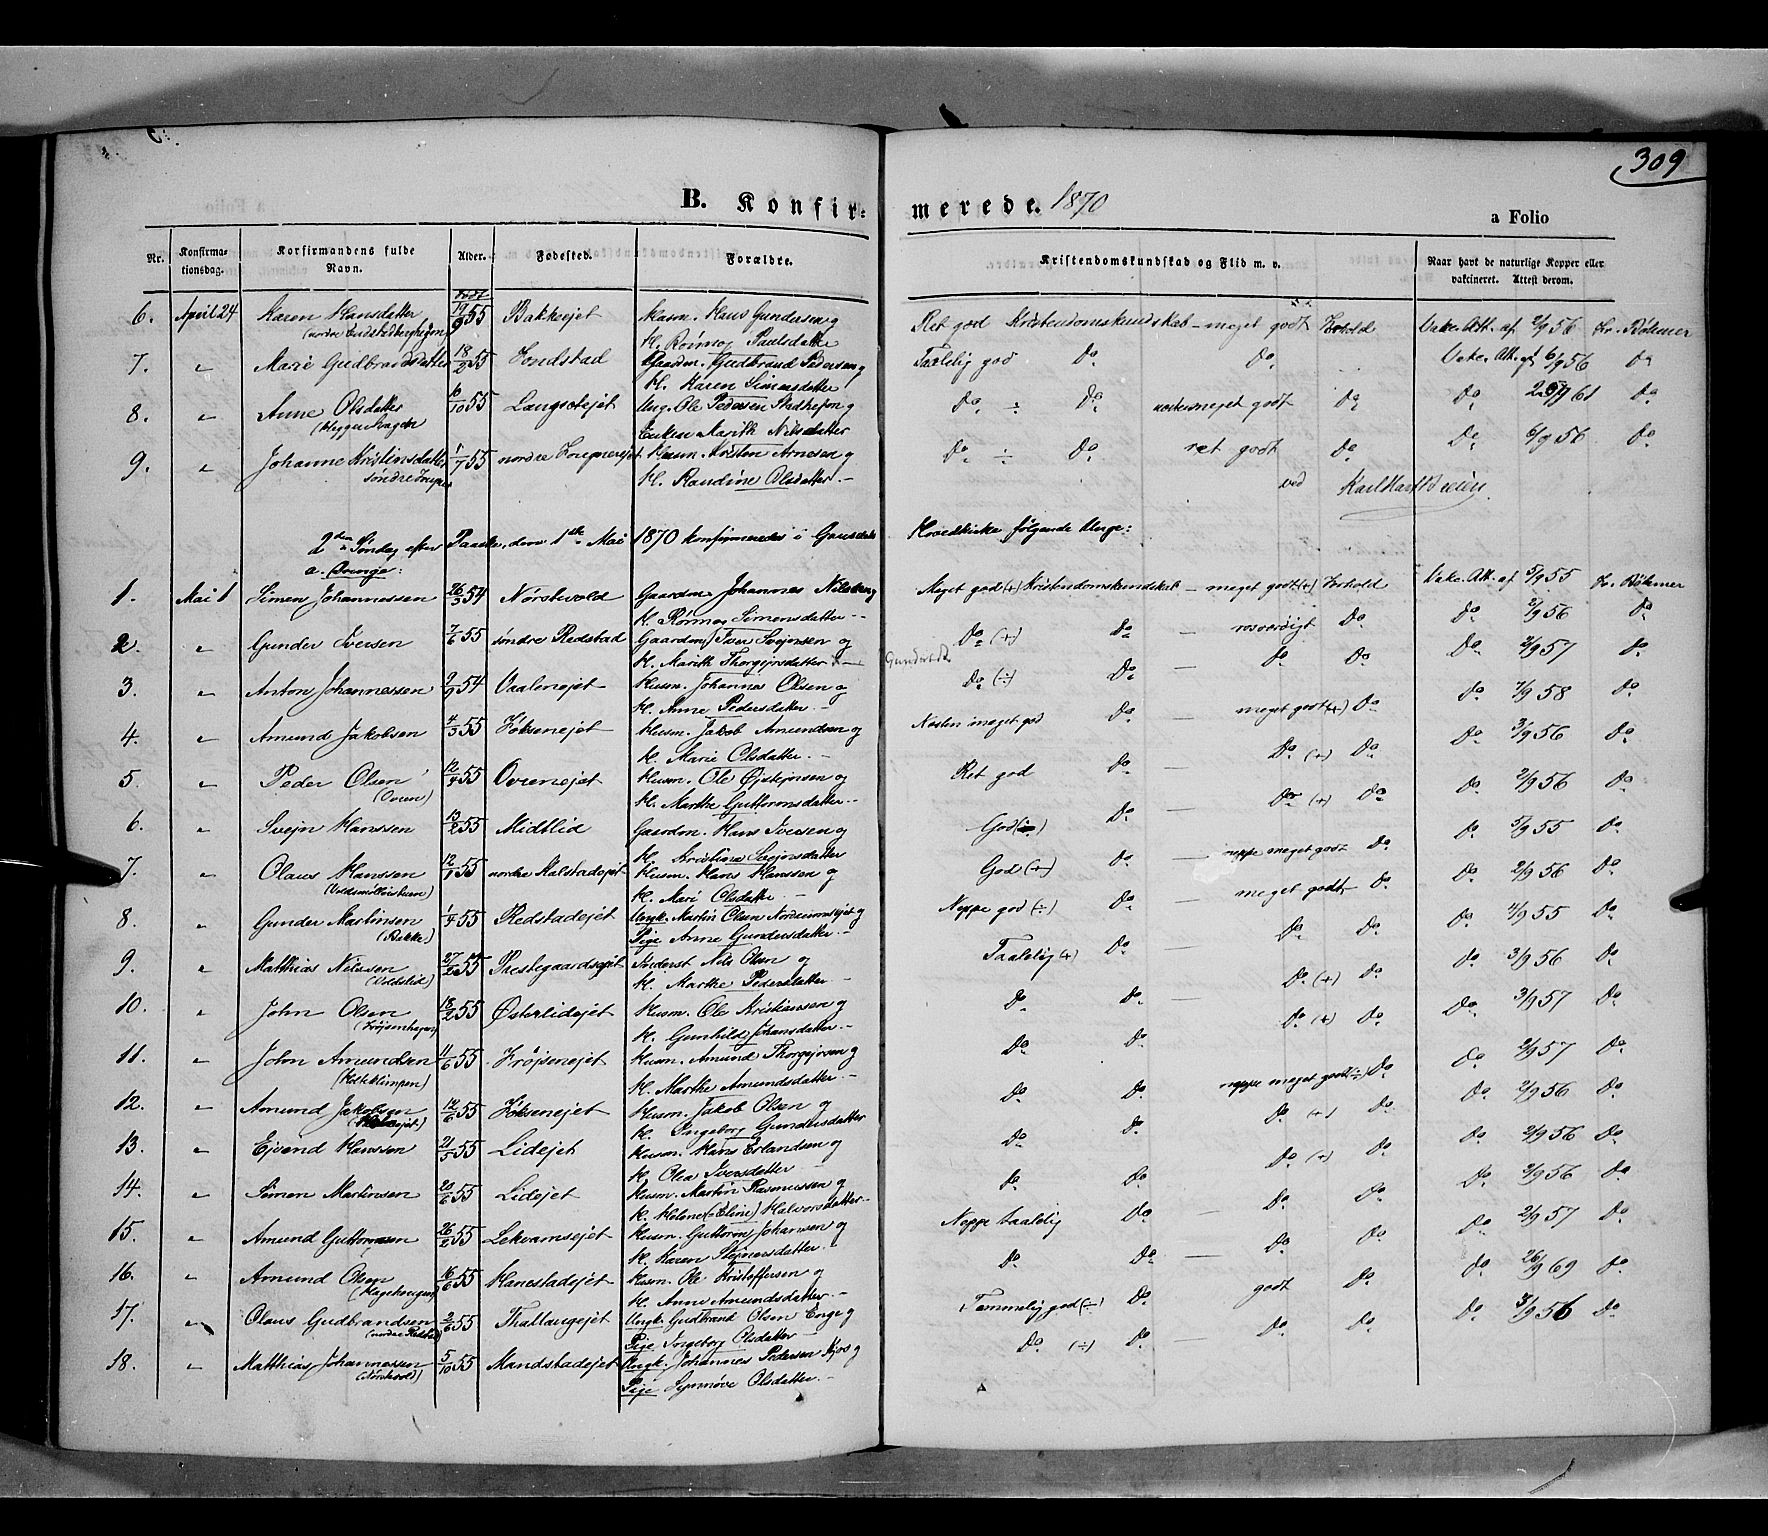 309
B. Konfir- merede. 1870
a Folio
Nr. Konfirma- Korfirmandens fulde Alder. Fødested. Forældre. Kristendomskundskab og Flid m. v. Naar havt de naturlige Kopper eller
tionsdag. Navn. vakcineret. Attest derom.
født
6. April 24 Karen Hansdatter 19/9 55 Bakkeejet Husm. Hans Gundersen og Ret god Kristendomskundskab - meget godt Forhold Vakc. Att. af 2/9 56 Bøhmer
K. Rønnog Paulsdatter
7. " Mari Gudbrandsdatter 18/2 55 Gaardm. Gudbrand Pedersen og Taalelig god Do Do Vakc. Att. af 6/9 56 Do
K. Karen Simensdatter
8. " Anne Olsdatter 16/10 55 Ung. Ole Pedersen og Do ÷ Do meget godt Do Do Do
(Heggenhagen) Enken Marith Nilsdatter
9. " Johanne Kristensdatter 1/7 55 nordre Husm. Kristen Arnesen og Do ÷ Do ret godt Do Do 6/9 56 Do
søndre K. Randine Olsdatter.-
ved
2den Søndag efter Paaske, den 1ste Mai 1870 konfirmeredes i Gausdals Hovedkirke følgende Unge:
a. Drenge:
1. Mai 1 Simen Johannessen 26/3 54 Nørstevold Gaardm. Johannes Nilssen og Meget god (+) Kristendomskundskab - meget godt (+) Forhold Vakc. Att. af 5/9 55 Bøhmer
K. Rønnog Simensdatter.-
2. " Gunder Iversen 7/6 55 søndre Redstad Gaardm. Iver Svejnsen og Do (+) Do - rosværdigt Do Do 2/9 56 Do
K. Marith Thorgejrsdatter
3. " Anton Johannessen 9/9 54 Vaalenejet Husm. Johannes Olsen og Do (÷) Do - Do Do Do 2/9 57 Do
K. Anne Pedersdatter.-
4. " Amund Jakobsen 4/3 55 Husm. Jakob Amundsen og Næsten meget god Do - meget godt (+) Do Do 7/9 58 Do
K. Marie Olsdatter.-
5. " Peder Olsen 12/4 55 Ovrenejet Husm. Ole Øjstejnsen og Ret god Do - Do (+) Do Do 3/9 56 Do
(Ovren) K. Marthe Guttormsdatter.-
6. " Svejn Hanssen 13/2 55 Midtlid Gaardm. Hans Iversen og God Do - Do (+) Do Do 2/9 56 Do
K. Kristine Svejnsdatter
7. " Olaus Hanssen 12/1 55 nordre Kalstadejet Husm. Hans Hanssen og God (+) Do - neppe meget godt Do Do 5/9 55 Do
K. Mari Olsdatter.-
8. " Gunder Martinsen 1/4 55 Redstadejet Ungk. Martin Olsen og Neppe god (÷) Do - meget godt Do Do 2/9 56 Do
(Bakke) Pige Anne Gundersdatter.-
9. " Matthias Nilssen 27/2 55 Prestegaardsejet Inderst Nils Olsen og Taalelig (+) Do - Do Do Do 4/9 55 Do
(Voldslid) K. Marthe Pedersdatter.-
10. " John Olsen 18/2 55 Østerlidejet Husm. Ole Kristiansen og Do Do - Do (+) Do Do 3/9 56 Do
K. Gunhild Johansdatter.-
11. " John Amundsen 11/6 55 Frøjsenejet Husm. Amund Thorgejrsen og Do Do Do (+) Do Do 3/9 57 Do
(Holteklimpen) K. Marthe Amundsdatter.-
12. " Amund Jakobsen 12/6 55 Husm. Jakob Olsen og Do Do neppe meget godt (÷) Do Do 2/9 57 Do
K. Ingeborg Gundersdatter
13. " Ejvend Hanssen 21/5 55 Lidejet Husm. Hans Erlandsen og Do Do Do (+) Do Do 2/9 56 Do
K. Olea Iversdatter.-
14. " Simen Martinsen 20/6 55 Lidejet Husm. Martin Rasmussen og Do Do Do (+) Do Do 2/9 56 Do
K. Helene (Eline) Halvorsdatter.-
15. " Amund Guttormsen 26/2 55 Lekvamsejet Husm. Guttorm Johansen og Neppe taalelig Do - Do Do Do 2/9 56 Do
K. Karen Stejnersdatter.-
16. " Amund Olsen 16/6 55 Kanestadejet Husm. Ole Kristoffersen og Do Do - Do Do Do 2/9 57 Do
(Hagehaugen) K. Anne Amundsdatter.-
17. " Olaus Gudbrandsen 2/6 55 Thallaugejet Ungk. Gudbrand Olsen Enge og Temmelig god (÷) Do godt Do Do 26/9 69 Do
Pige Ingeborg Olsdatter
18. " Matthias Johannessen 5/10 55 Mandstadejet Ungk. Johannes Pedersen og Do (÷) Do Do Do Do 3/9 56 Do
(Nørstevold) Pige Synnøve Olsdatter.-